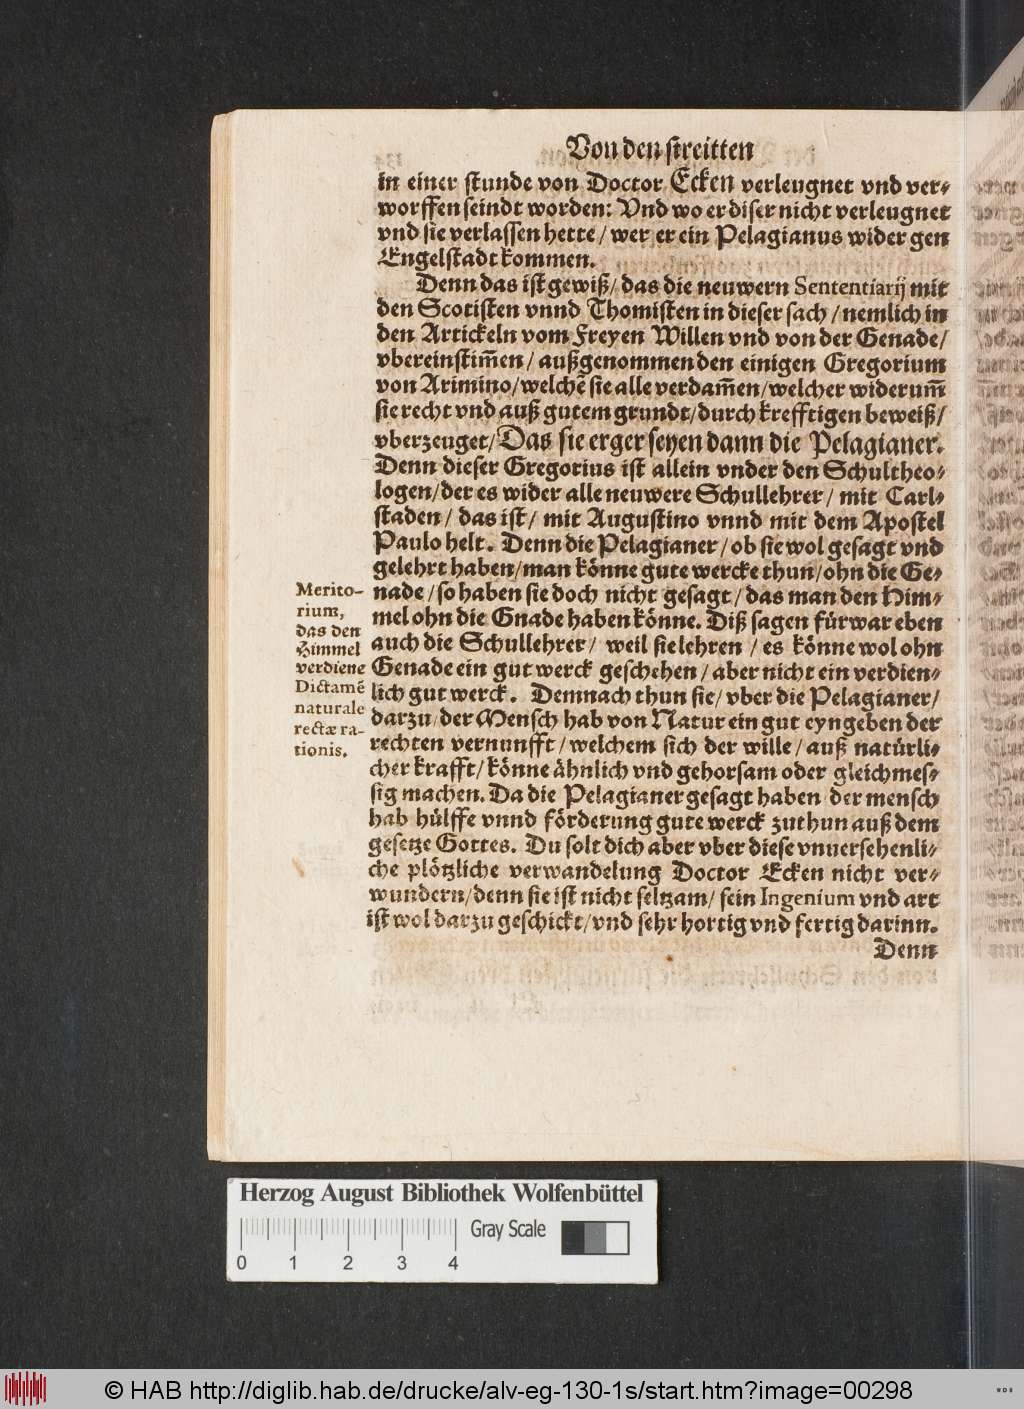 Von den streitten
in einer stunde von Doctor Ecken verleugnet vnd ver-
worffen seindt worden: Vnd wo er diser nicht verleugnet
vnd sie verlassen hette / wer er ein Pelagianus wider gen
Engelstadt kommen.
Denn das ist gewiß / das die neuwern Sententiarij mit
den Scotisten vnnd Thomisten in dieser sach / nemlich in
den Artickeln vom Freyen Willen vnd von der Genade /
vbereinstim̃en / außgenommen den einigen Gregorium
von Arimino / welchẽ sie alle verdam̃en / welcher widerum̃
sie recht vnd auß gutem grundt / durch krefftigen beweiß /
vberzeuget / Das sie erger seyen dann die Pelagianer.
Denn dieser Gregorius ist allein vnder den Schultheo-
logen / der es wider alle neuwere Schullehrer / mit Carl-
staden / das ist / mit Augustino vnnd mit dem Apostel
Paulo helt. Denn die Pelagianer / ob sie wol gesagt vnd
gelehrt haben / man könne gute wercke thun / ohn die Ge-
nade / so haben sie doch nicht gesagt / das man den Him-
mel ohn die Gnade haben könne. Diß sagen fürwar eben
auch die Schullehrer / weil sie lehren / es könne wol ohn
Genade ein gut werck geschehen / aber nicht ein verdien-
lich gut werck. Demnach thun sie / vber die Pelagianer /
darzu / der Mensch hab von Natur ein gut eyngeben der
rechten vernunfft / welchem sich der wille / auß natürli-
cher krafft / könne ähnlich vnd gehorsam oder gleichmes-
sig machen. Da die Pelagianer gesagt haben der mensch
hab hülffe vnnd förderung gute werck zuthun auß dem
gesetze Gottes. Du solt dich aber vber diese vnuersehenli-
che plötzliche verwandelung Doctor Ecken nicht ver-
wundern / denn sie ist nicht seltzam / sein Ingenium vnd art
ist wol darzu geschickt / vnd sehr hortig vnd fertig darinn.
Denn
Merito-
rium,
das den
Himmel
verdiene
Dictamẽ
naturale
rectæ ra-
tionis.
Herzog August Bibliothek Wolfenbüttel
Gray Scale
0 1 2 3 4
© HAB http://diglib.hab.de/drucke/alv-eg-130-1s/start.htm?image=00298